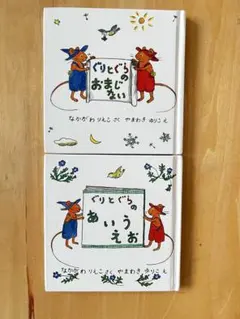 ぐりとぐらの
おまじない
なかがわ りえこ さく やまわき ゆりこ え
ぐりとぐらの
あいう
えお
なかがわ りえこ さく やまわき ゆりこ え